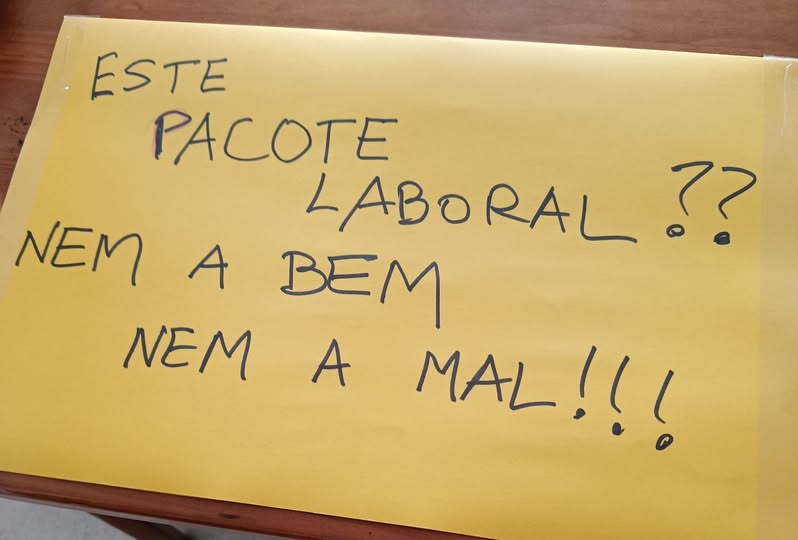 ESTE
PACOTE
LABORAL??
NEM A BEM
NEM A MAL!!!